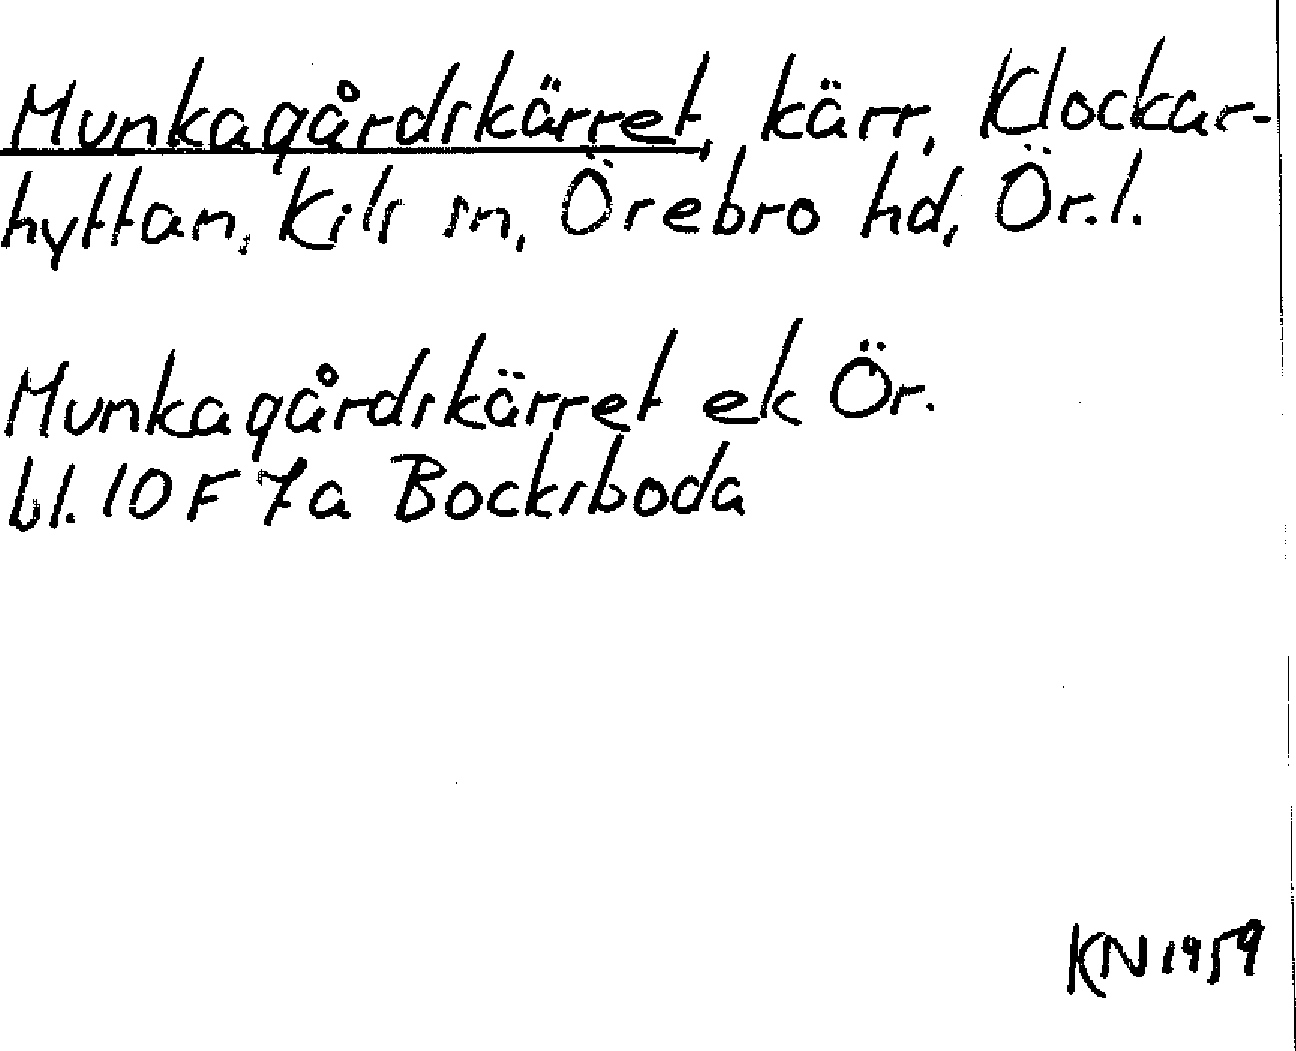 Munkagårdskärret, kärr, Klockar-
hyttan, Kils sn, Örebro hd, Ör.l.
Munkagårdskärret ek Ör.
bl. 10 F 7a Bocksboda
KN 1959